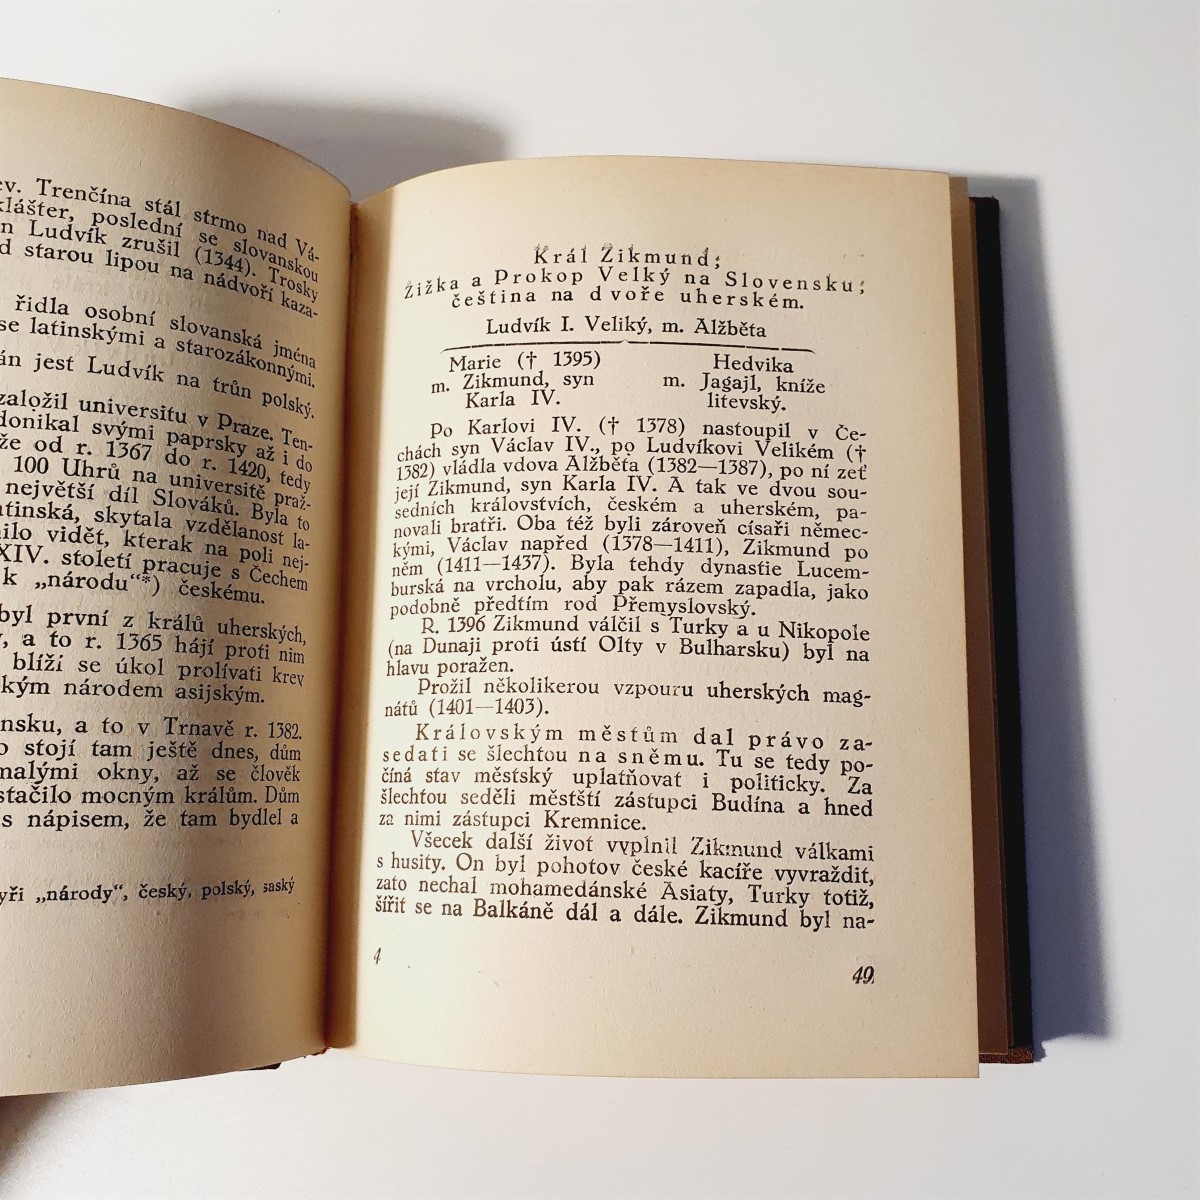 ev. Trenčína stál strmo nad Vá-
klášter, poslední se slovanskou
n Ludvík zrušil (1344). Trosky
d starou lipou na nádvoří kaza-
řidla osobní slovanská jména
se latinskými a starozákonnými.
án jest Ludvík na trůn polský.
založil universitu v Praze. Ten-
donikal svými paprsky až i do
že od r. 1367 do r. 1420, tedy
100 Uhrů na universitě praž-
největší díl Slováků. Byla to
atinská, skytala vzdělanost la-
nilo vidět, kterak na poli nej-
XIV. století pracuje s Čechem
k „národu“*) českému.
byl první z králů uherských,
y, a to r. 1365 hájí proti nim
blíží se úkol prolívati krev
kým národem asijským.
ensku, a to v Trnavě r. 1382.
o stojí tam ještě dnes, dům
malými okny, až se člověk
stačilo mocným králům. Dům
s nápisem, že tam bydlel a
yři „národy“, český, polský, saský
Král Zikmund;
Žižka a Prokop Velký na Slovensku;
čeština na dvoře uherském.
Ludvík I. Veliký, m. Alžběta
Marie († 1395) Hedvika
m. Zikmund, syn m. Jagajl, kníže
Karla IV. litevský.
Po Karlovi IV. († 1378) nastoupil v Če-
chách syn Václav IV., po Ludvíkovi Velikém (†
1382) vládla vdova Alžběta (1382—1387), po ní zeť
její Zikmund, syn Karla IV. A tak ve dvou sou-
sedních královstvích, českém a uherském, pa-
novali bratři. Oba též byli zároveň císaři německ-
kými, Václav napřed (1378—1411), Zikmund po
něm (1411—1437). Byla tehdy dynastie Lucem-
burská na vrcholu, aby pak rázem zapadla, jako
podobně předtím rod Přemyslovský.
R. 1396 Zikmund válčil s Turky a u Nikopole
(na Dunaji proti ústí Olty v Bulharsku) byl na
hlavu poražen.
Prožil několikerou vzpouru uherských mag-
nátů (1401—1403).
Královským městům dal právo za-
sedati se šlechtou na sněmu. Tu se tedy po-
číná stav městský uplatňovat i politicky. Za
šlechtou seděli městští zástupci Budína a hned
za nimi zástupci Kremnice.
Všecek další život vyplnil Zikmund válkami
s husity. On byl pohotov české kacíře vyvraždit,
zato nechal mohamedánské Asiaty, Turky totiž,
šířit se na Balkáně dál a dále. Zikmund byl na-
4
49